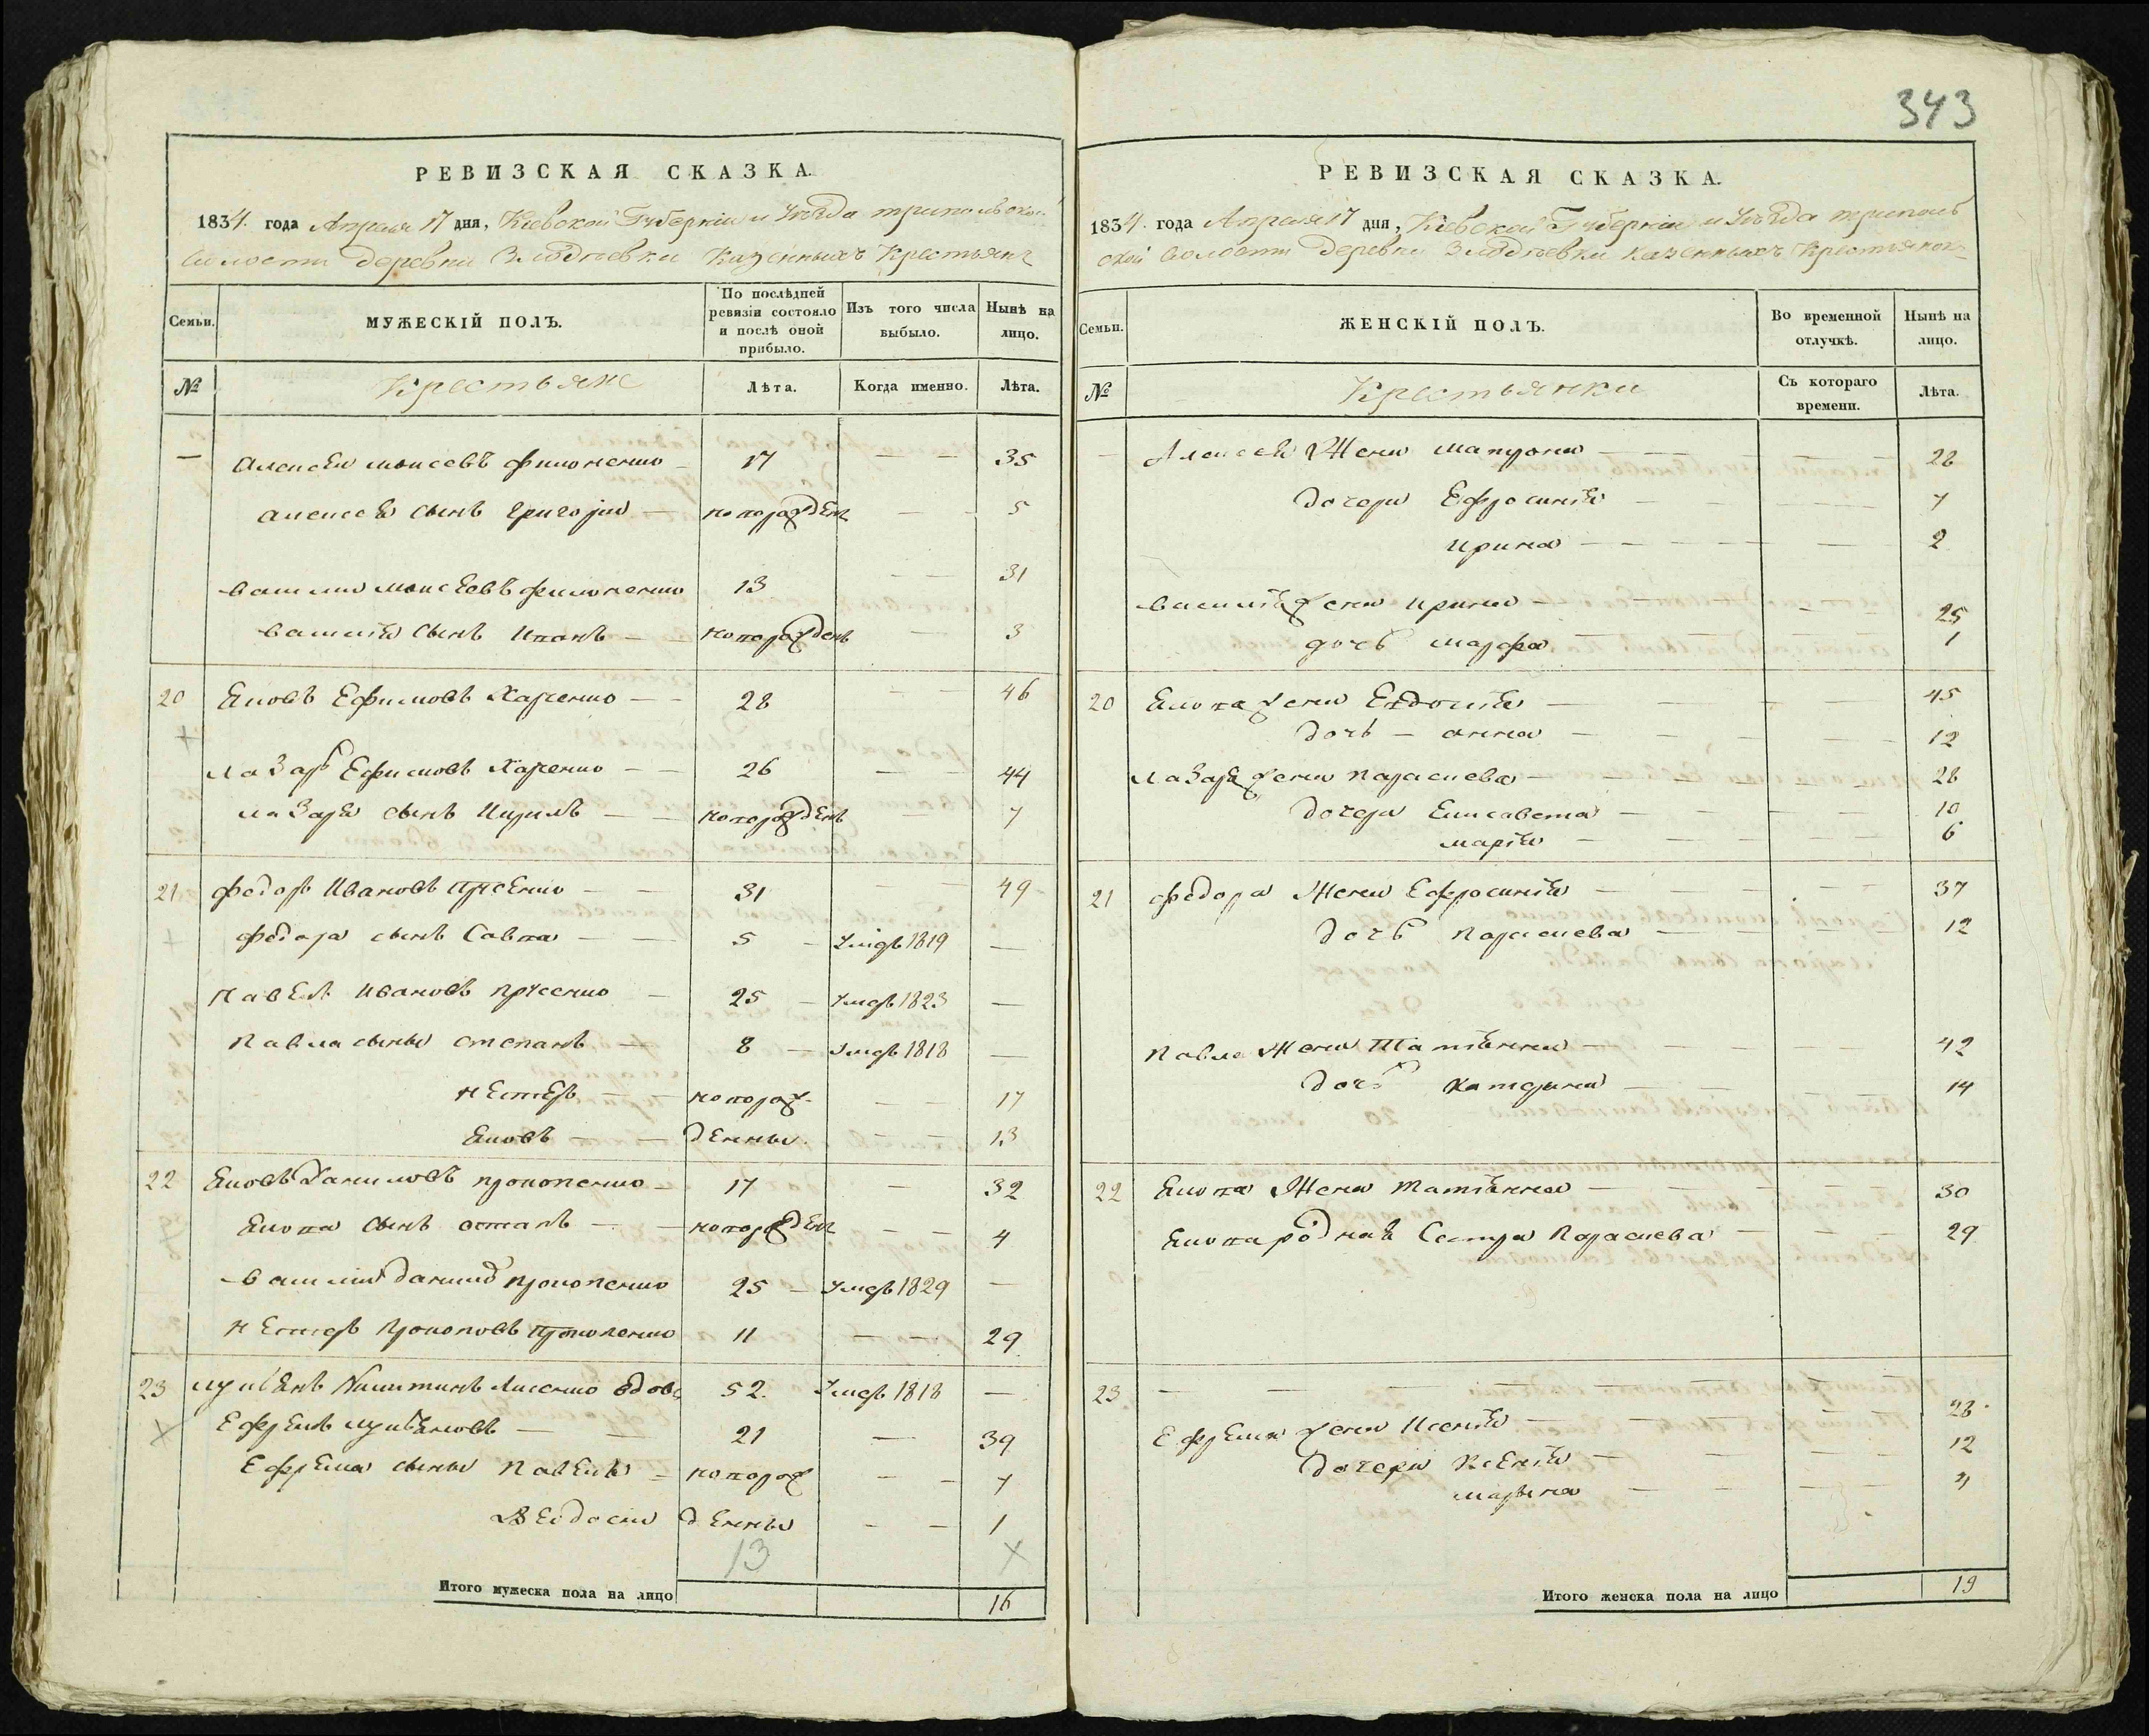 343
РЕВИЗСКАЯ СКАЗКА.
1834. года Апреля 17 дня, Кіевской Губерніи и Уѣзда трипольской
волости деревни Злодѣевки Казенныхъ Крестьянъ
Семьи.
МУЖЕСКІЙ ПОЛЪ.
По послѣдней ревизіи состояло и послѣ оной прибыло.
Изъ того числа выбыло.
Нынѣ на лицо.
№
Крестьяне
Лѣта.
Когда именно.
Лѣта.
— Алексей моисеевъ филоненко — 17 — — 35
Алексея сынъ григорій — новорожденъ — 5
василий моисеевъ филоненко 13 — — 31
василія сынъ Иванъ — новорожденъ — 3
20 Яковъ Ефимовъ Харченко — — 28 — — 46
лазарь Ефимовъ Харченко — — 26 — 44
лазаря сынъ Кирилъ — — новорожденъ — 7
21 федоръ Ивановъ — — 31 — — 49
федора сынъ Савва — — 5 — Умеръ 1819 —
павелъ Ивановъ — 25 — Умеръ 1823 —
павла сыны степанъ — 8 — Умеръ 1818 —
нестеръ — — новорож- — — 17
Яковъ — — денны — — 13
22 Яковъ Даниловъ прокопенко — 17 — 32
Якова сынъ остапъ — — новорожденъ — — 4
василий данилов прокопенко 25 — Умеръ 1829 —
нестеръ прокоповъ прокопенко 11 — — 29
23 лукьянъ Никитинъ Лисенко вдовъ 52. Умеръ 1818 —
Ефремъ лукьяновъ — — 21 — 39
Ефрема сыны павелъ — новорож — — 7
Феодосий денны — — 1
13
Итого мужеска пола на лицо 16
РЕВИЗСКАЯ СКАЗКА.
1834. года Апреля 17 дня, Кіевской Губерніи и Уѣзда триполь
ской волости деревни Злодѣевки казенныхъ Крестьянок
Семьи.
ЖЕНСКІЙ ПОЛЪ.
Во временной отлучкѣ.
Нынѣ на лицо.
№
Крестьянки
Съ котораго времени.
Лѣта.
— Алексея Жена матрона — — 28
дочери Ефросинія — 7
ирина — — — 2
василія жена ирина — 25
дочь марфа 1
20 Якова жена Евдокія — — 45
дочь — анна — — — 12
лазаря жена параскева — — 28
дочери Елисавета — — 10
марія — — 6
21 федора Жена Ефросинія — — 37
дочь параскева — — 12
павла Жена Татіянна — — 42
дочь катерина — — 14
22 Якова Жена татіянна — — 30
Якова родная Сестра параскева — — 29
23 — — — —
Ефрема жена Ксенія — — 28
дочери Ксенія — — 12
марина — — 4
Итого женска пола на лицо 19